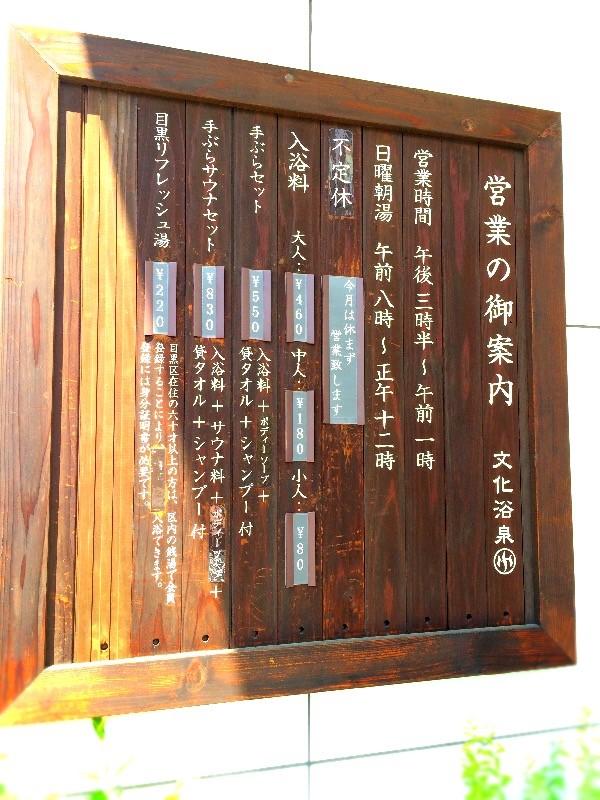 営業の御案内 文化浴泉
営業時間 午後三時半～午前一時
日曜朝湯 午前八時～正午十二時
不定休
今月は休まず
営業致します
入浴料 大人：¥460 中人：¥180 小人：¥80
手ぶらセット ¥550
入浴料＋ボディーソープ＋
貸タオル＋シャンプー付
手ぶらサウナセット ¥830
入浴料＋サウナ料＋ボディーソープ＋
貸タオル＋シャンプー付
目黒リフレッシュ湯 ¥220
目黒区在住の六十才以上の方は、区内の銭湯で会員
登録することにより 入浴できます。
登録には身分証明書が必要です。